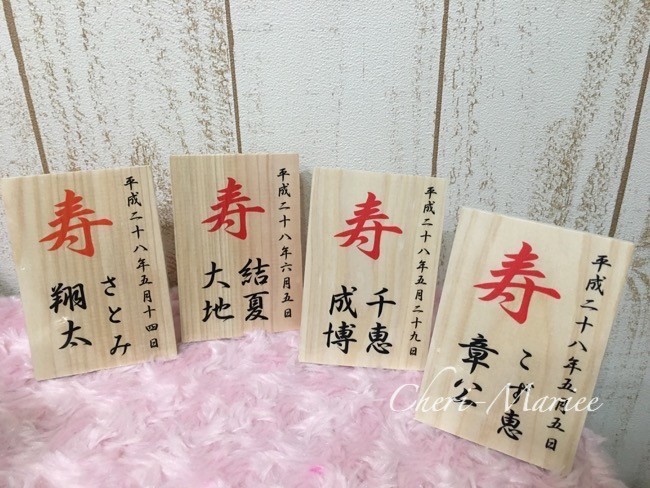 寿
平成二十八年五月十四日
さとみ
翔太
寿
平成二十八年六月五日
結夏
大地
寿
平成二十八年五月二十九日
千恵
成博
寿
平成二十八年五月五日
こず恵
章公
Cheri-Mariee